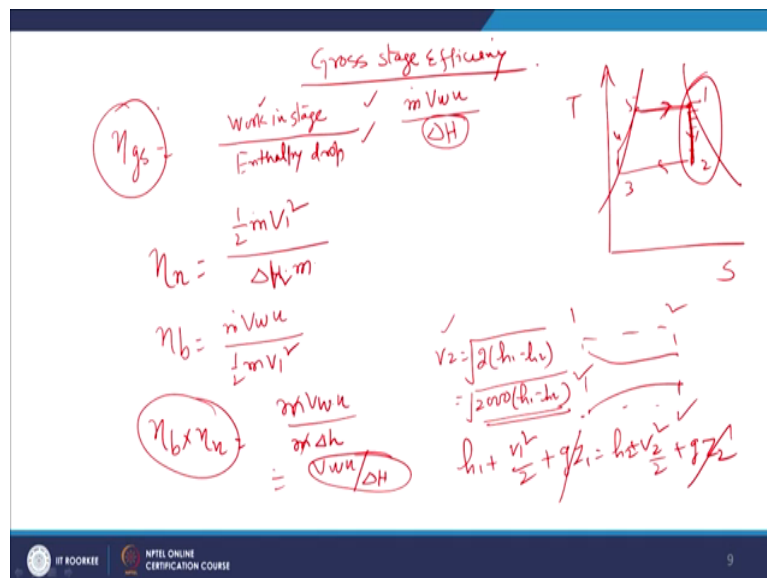 Gross stage Efficiency
ηgs = Work in stage / Enthalpy drop
ṁ Vw u / ΔH
ηn = ½ ṁ V₁² / Δh ṁ
ηb = ṁ Vw u / ½ ṁ V₁²
ηb × ηn = ṁ Vw u / ṁ Δh
= Vw u / ΔH
T
5 1
4
3 2
S
1 - - - 2
V2 = √2(h₁-h₂)
= √2000(h₁-h₂)
h₁ + V₁²/2 + gZ₁ = h₂ + V₂²/2 + gZ₂
IIT ROORKEE
NPTEL ONLINE
CERTIFICATION COURSE
9